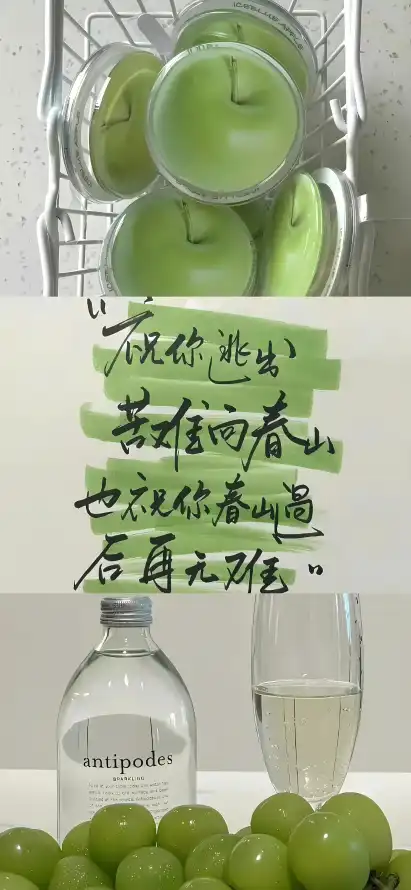 ICEBLUE APPLE
“祝你逃出
苦难向春山
也祝你春山过
后再无难”
antipodes
SPARKLING